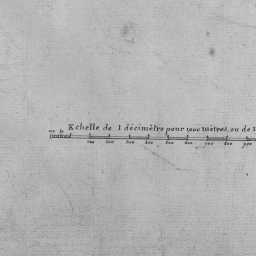 Echelle de 1 décimètre pour 1000 mètres, ou de 1
100 200 300 400 500 600 700 800 900